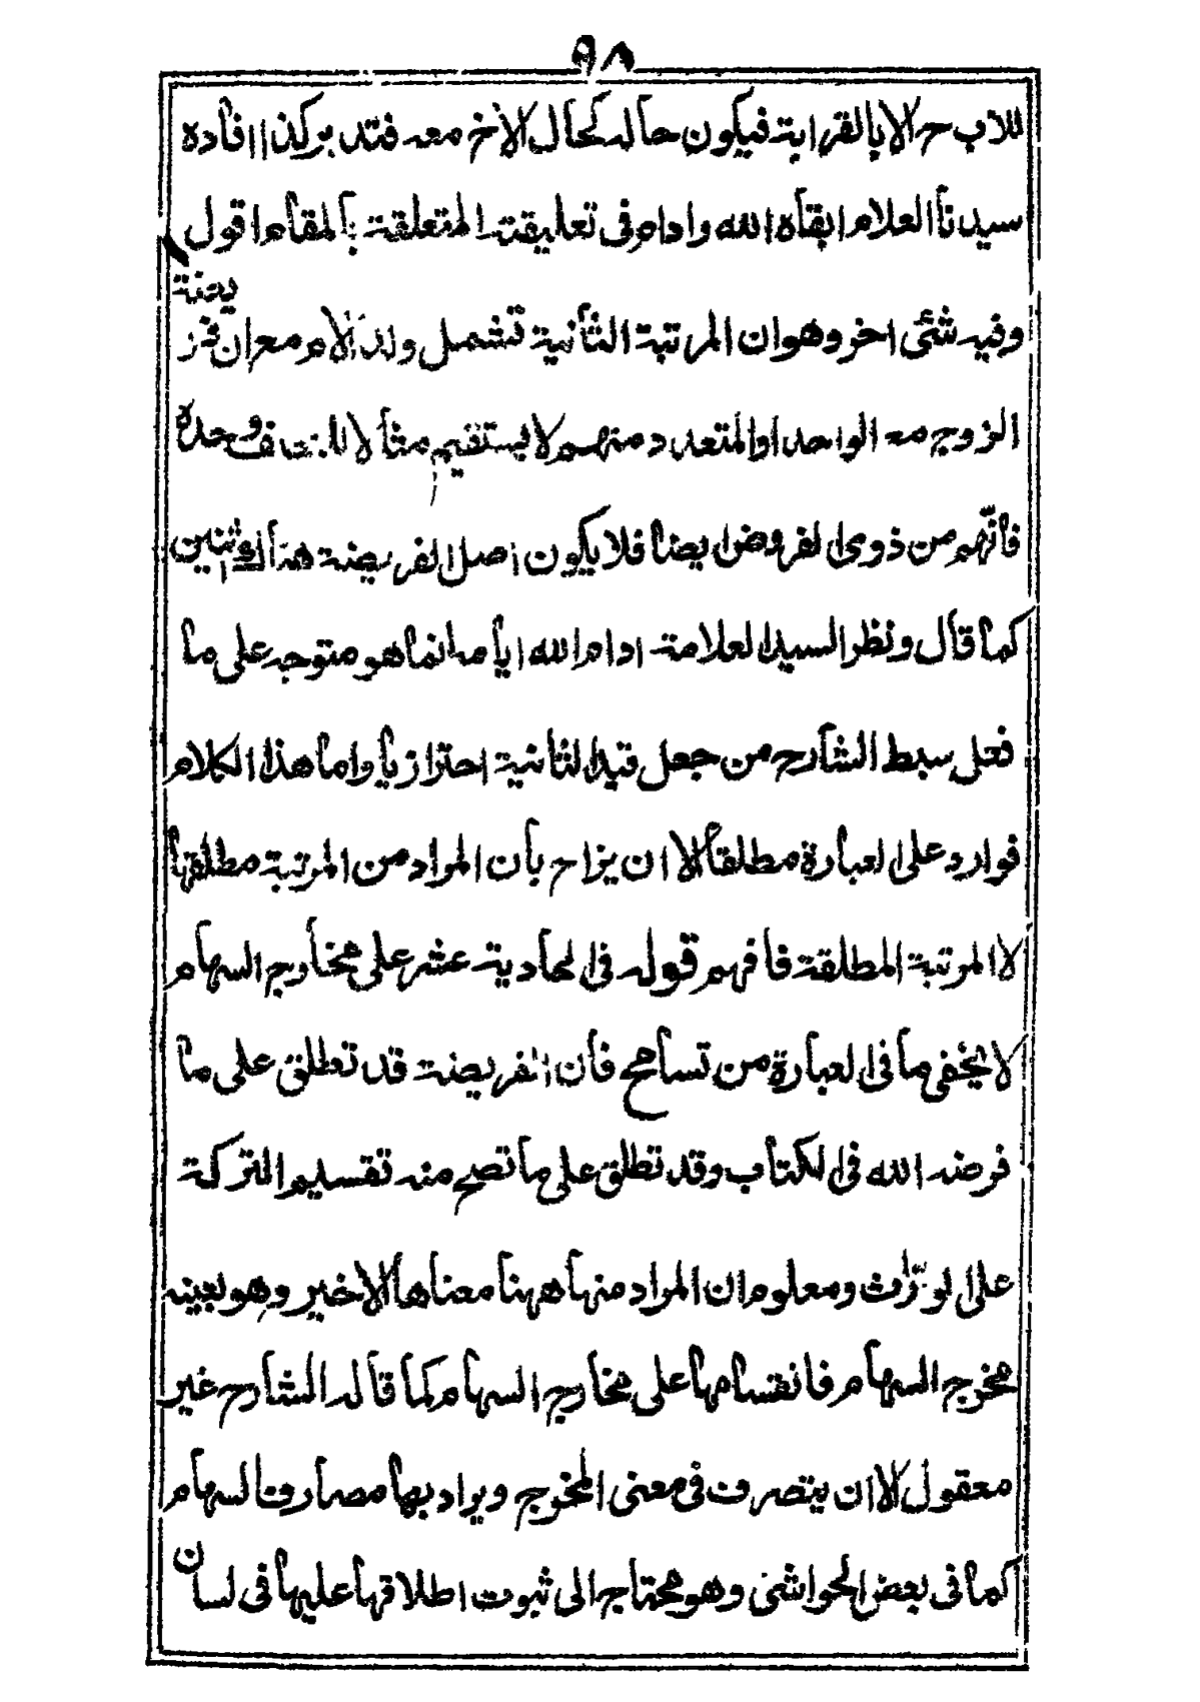 ٩٨
للاب ح الا بالقرابة فيكون حاله كحال الاخ معه فتدبر كذا افاده
سيدنا العلام ابقاه الله وادام فى تعليقته المتعلقة بالمقام اقول
وفيه شئى اخر وهو ان المرتبة الثانية تشمل ولد الام مع ان فريضة
الزوج مع الواحد او المتعدد منهم لا يستقيم مثالا وحده
فانّهم من ذوى الفروض ايضا فلا يكون اصل الفريضة هنا اثنين
كما قال ونظر السيد العلامة ادام الله ايامه انما هو متوجه على ما
فعل سبط الشارح من جعل قيد الثانية احترازيا واما هذا الكلام
فوارد على العبارة مطلقا الا ان يزاح بان المراد من المرتبة مطلقها
لا المرتبة المطلقة فافهم قوله فى الحادية عشر على مخارج السهام
لا يخفى ما فى العبارة من تسامح فان الفريضة قد تطلق على ما
فرضه الله فى الكتاب وقد تطلق على ما تصح منه تقسيم التركة
على الورّاث ومعلوم ان المراد منها ههنا معناها الاخير وهو بعينه
مخرج السهام فانقسامها على مخارج السهام كما قاله الشارح غير
معقول الا ان يتصرف فى معنى المخرج ويراد بها مصارف السهام
كما فى بعض الحواشى وهو محتاج الى ثبوت اطلاقها عليها فى لسان